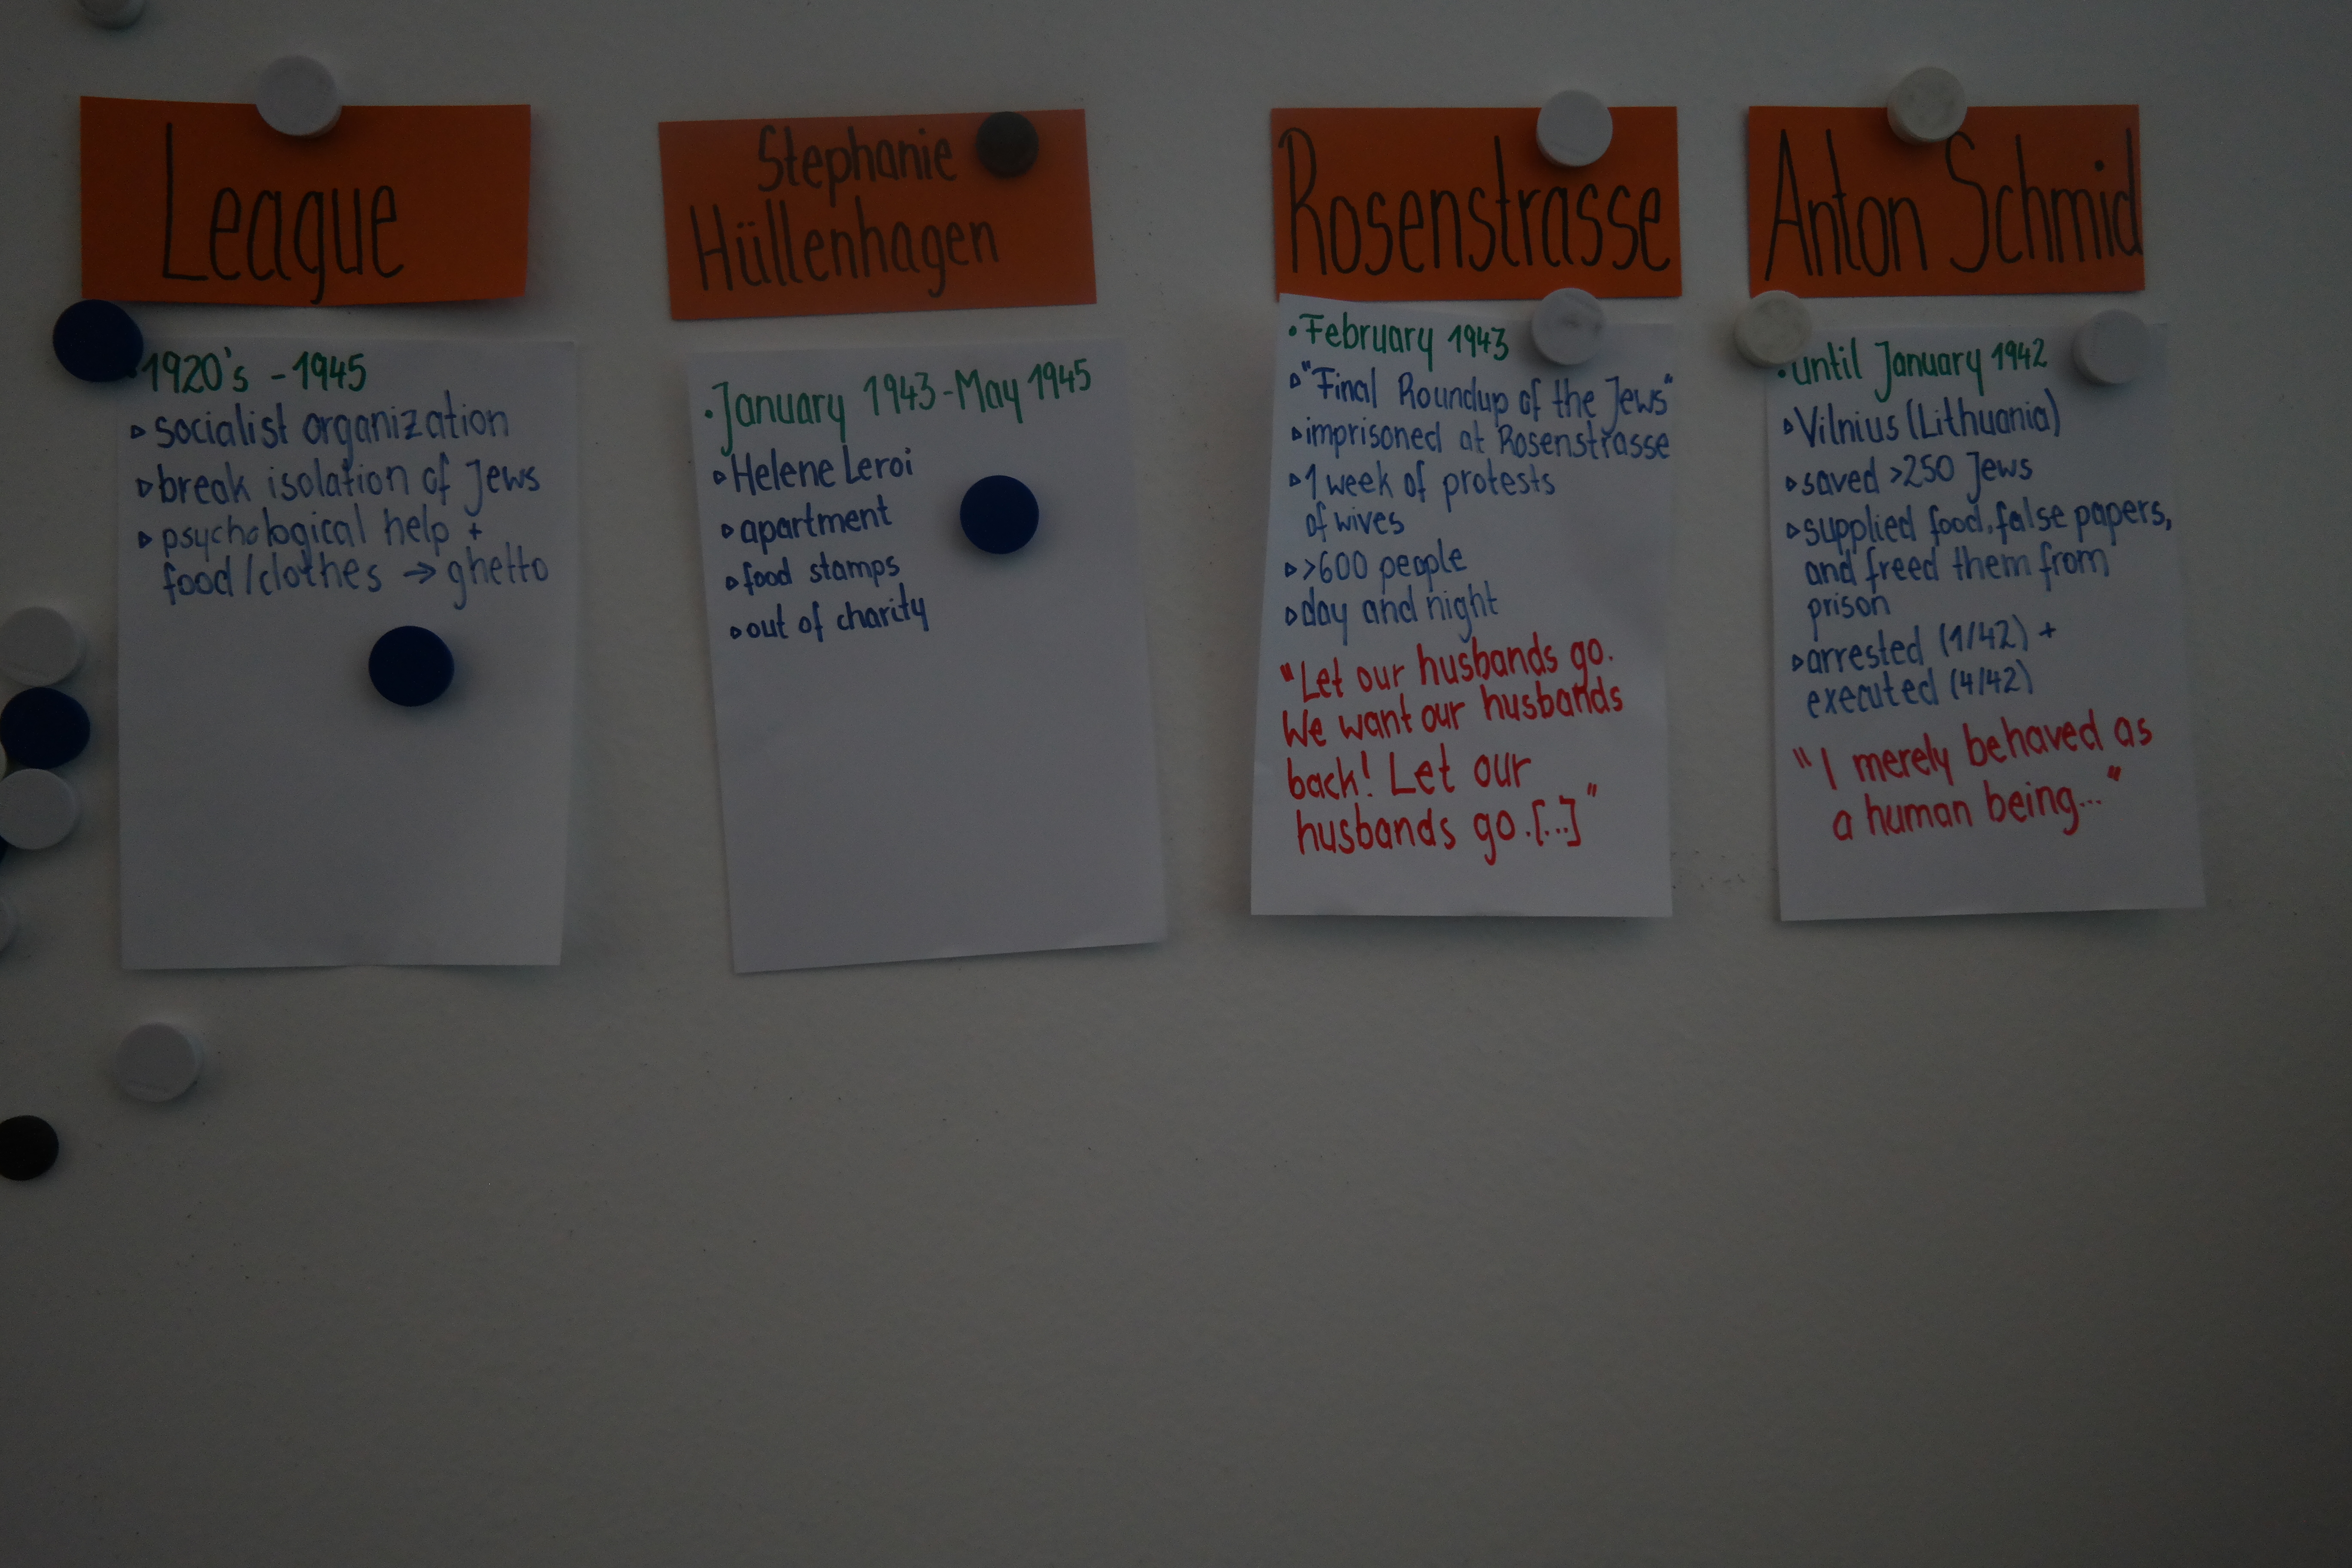 League
• 1920's - 1945
▹ socialist organization
▹ break isolation of Jews
▹ psychological help +
food/clothes → ghetto
Stephanie
Hüllenhagen
• January 1943 - May 1945
▹ Helene Leroi
▹ apartment
▹ food stamps
▹ out of charity
Rosenstrasse
• February 1943
▹ "Final Roundup of the Jews"
▹ imprisoned at Rosenstrasse
▹ 1 week of protests
of wives
▹ >600 people
▹ day and night
"Let our husbands go.
We want our husbands
back! Let our
husbands go.[...]"
Anton Schmid
• until January 1942
▹ Vilnius (Lithuania)
▹ saved >250 Jews
▹ supplied food, false papers,
and freed them from
prison
▹ arrested (1/42) +
executed (4/42)
"I merely behaved as
a human being..."